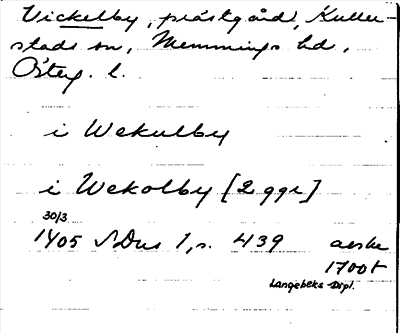 Vickelby, prästgård, Kuller-
stads sn, Memmings hd,
Österg. l.
i Wekulby
i Wekolby [2 ggr]
30/3
1405 SDns 1, s. 439 avskr
1700t
Langebeks Dipl.